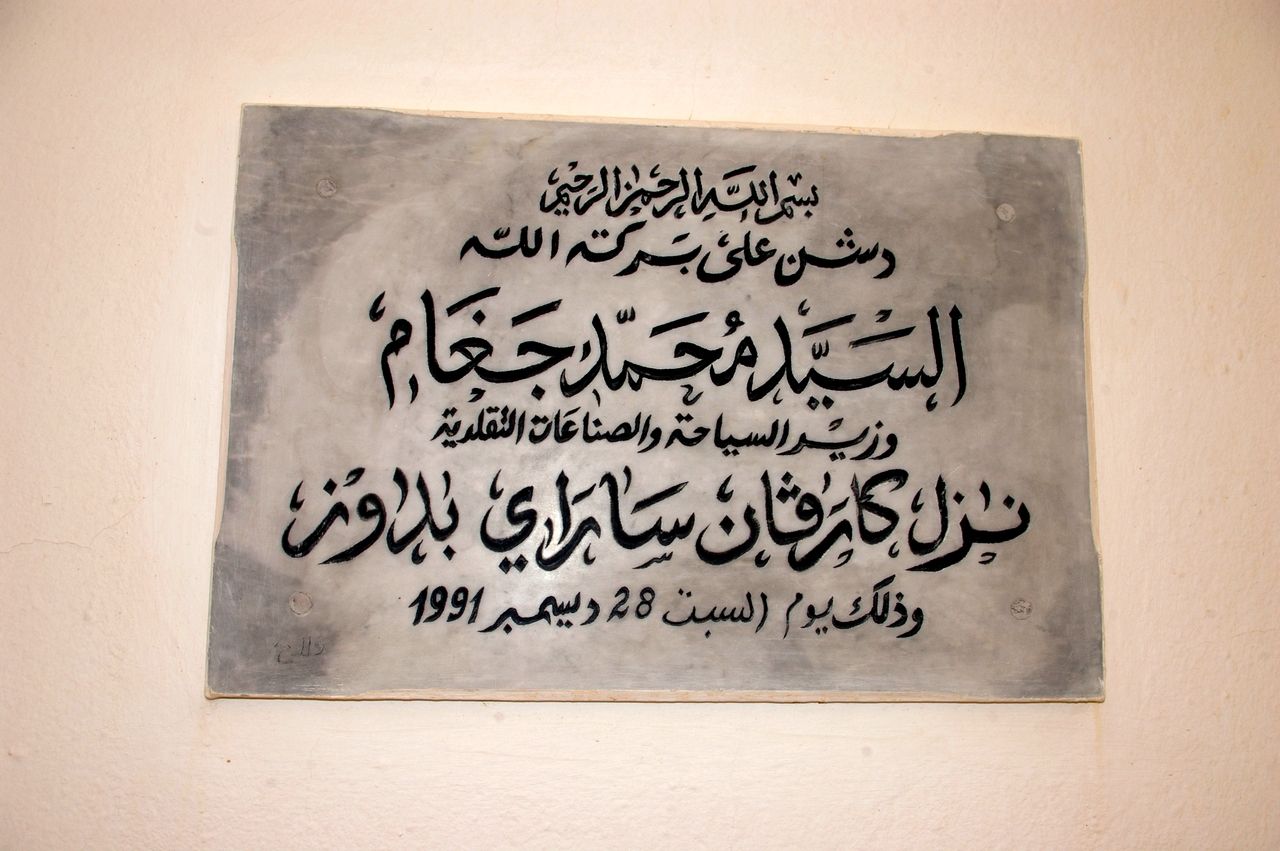 بسم الله الرحمن الرحيم
دشن على بركة الله
السيد محمد جغام
وزير السياحة والصناعات التقلدية
نزل كارڤان ساراي بدوز
وذلك يوم السبت 28 ديسمبر 1991